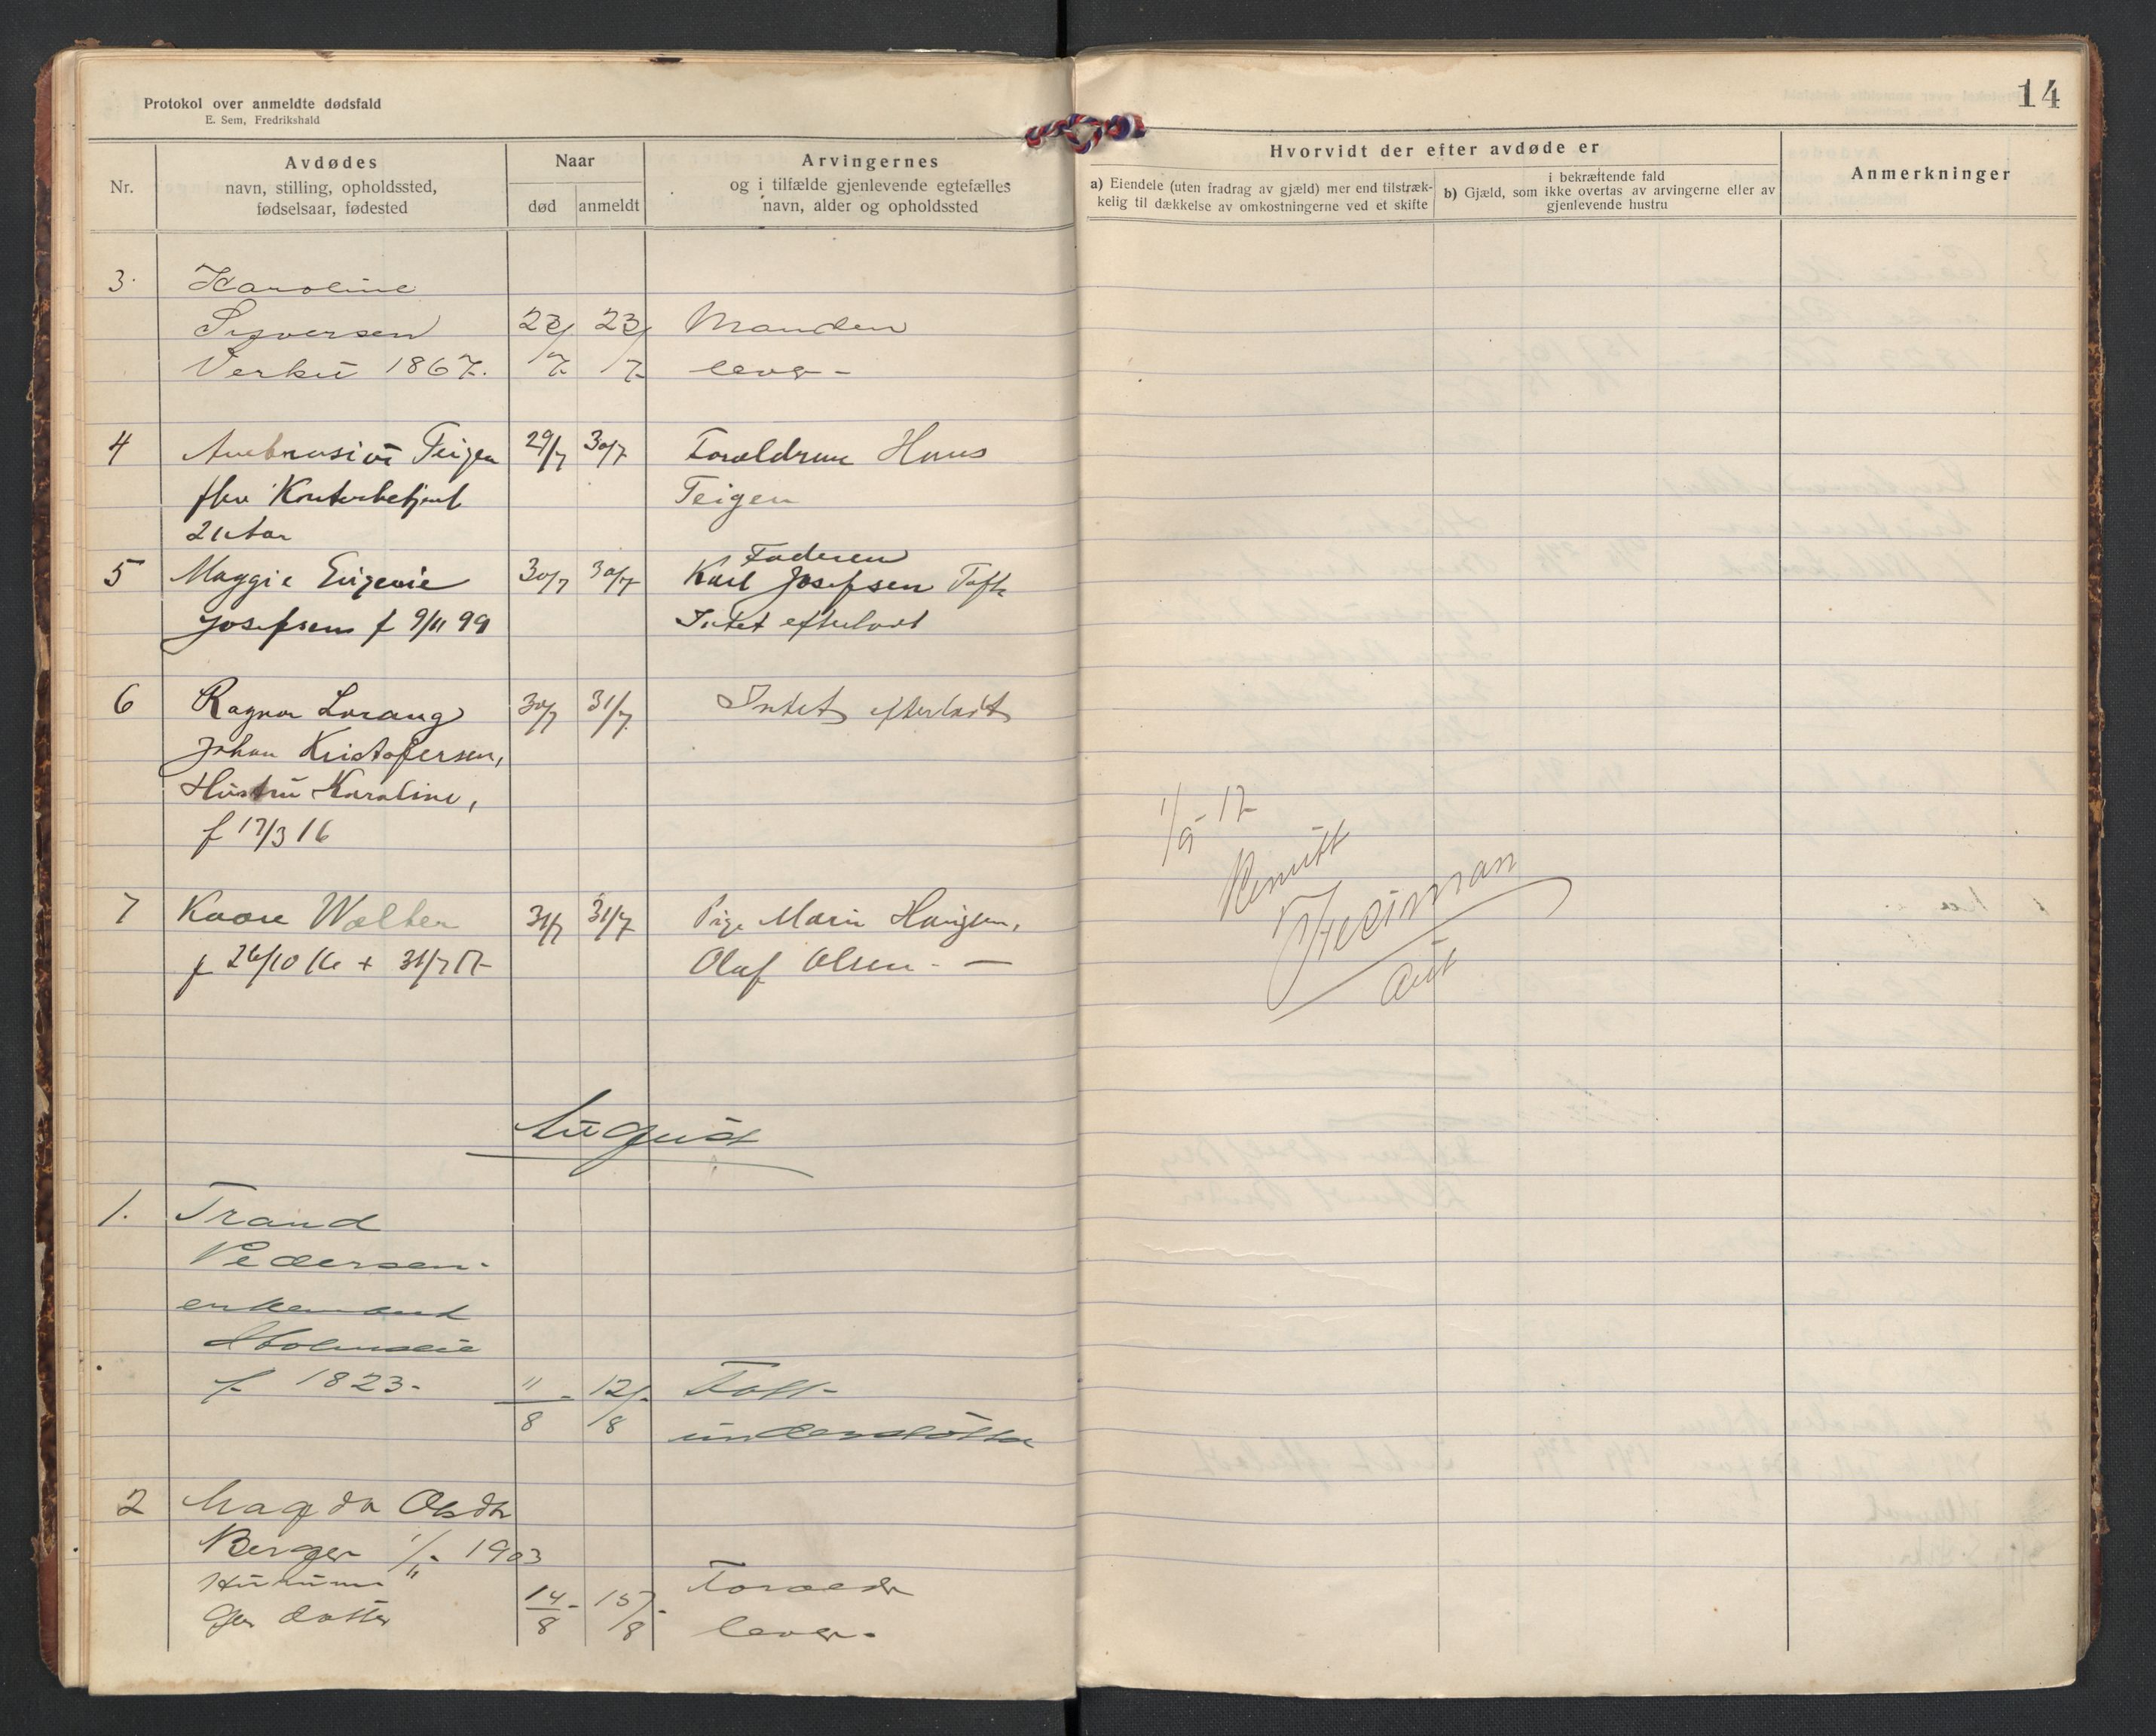 Protokol over anmeldte dødsfald
E. Sem, Fredrikshald
14
Nr.
Avdødes
navn, stilling, opholdssted,
fødselsaar, fødested
Naar
død
anmeldt
Arvingernes
og i tilfælde gjenlevende egtefælles
navn, alder og opholdssted
Hvorvidt der efter avdøde er
a) Eiendele (uten fradrag av gjæld) mer end tilstræk-
kelig til dækkelse av omkostningerne ved et skifte
i bekræftende fald
b) Gjæld, som ikke overtas av arvingerne eller av
gjenlevende hustru
Anmerkninger
3. Karoline
Syversen 23/7 23/7 Manden
1867. lever -
4 Teigen 29/7 30/7 Forældrene Hans
fhv Kontorbetjent Teigen
21 Aar
5 Maggie Eugenie 30/7 30/7 Faderen
Karl Josefsen Tofte
Josefsen f 9/11 99 Intet efterladt
6 Ragnar Lorang 30/7 31/7 Intet efterladt
Johan Kristofersen,
Hustru Karoline,
f 17/3 16
7 Kaare Walter 31/7 31/7 Pige Marie
f 26/10 16 + 31/7 17 Olaf Olsen. —
1/9 - 17
August
1. Trand
Pedersen -
enkemand
f. 1823 - 11/8 - 12/8 - Fatt.
understøttet
2 Magda
Berger 1/11 - 1903
Hurum
datter 14/8 - 15/8 - Foræld
lever -